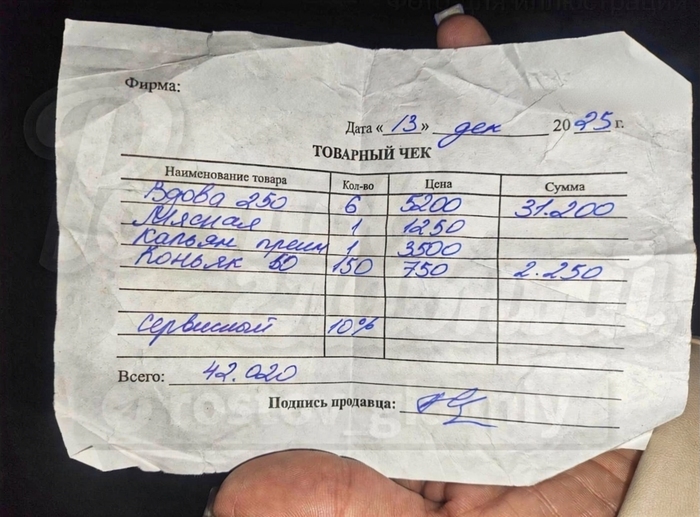 Фото для иллюстрации
Фирма:
Дата « 13 » дек 2025 г.
ТОВАРНЫЙ ЧЕК
Наименование товара Кол-во Цена Сумма
Вдова 250 6 5200 31.200
Мясная 1 1250
Кальян прем 1 3500
Коньяк 50 150 750 2.250
Сервисной 10%
Всего: 42.020
Подпись продавца: